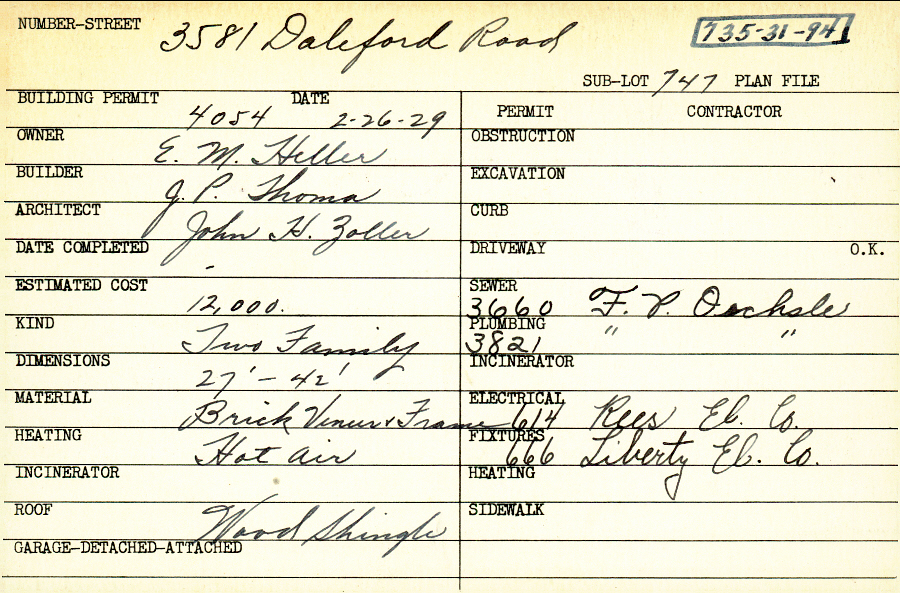 NUMBER-STREET 3581 Daleford Road 735-31-94
SUB-LOT 747 PLAN FILE
BUILDING PERMIT 4054 DATE 2-26-29
OWNER E. M. Heller
BUILDER J. P. Thoma
ARCHITECT John H. Zoller
DATE COMPLETED -
ESTIMATED COST 12,000.
KIND Two Family
DIMENSIONS 27' - 42'
MATERIAL Brick Veneer & Frame
HEATING Hot air
INCINERATOR
ROOF Wood Shingle
GARAGE-DETACHED-ATTACHED
PERMIT CONTRACTOR
OBSTRUCTION
EXCAVATION
CURB
DRIVEWAY O.K.
SEWER 3660 F. P. Oechsle
PLUMBING 3821 " "
INCINERATOR
ELECTRICAL 614 Rees El. Co.
FIXTURES 666 Liberty El. Co.
HEATING
SIDEWALK